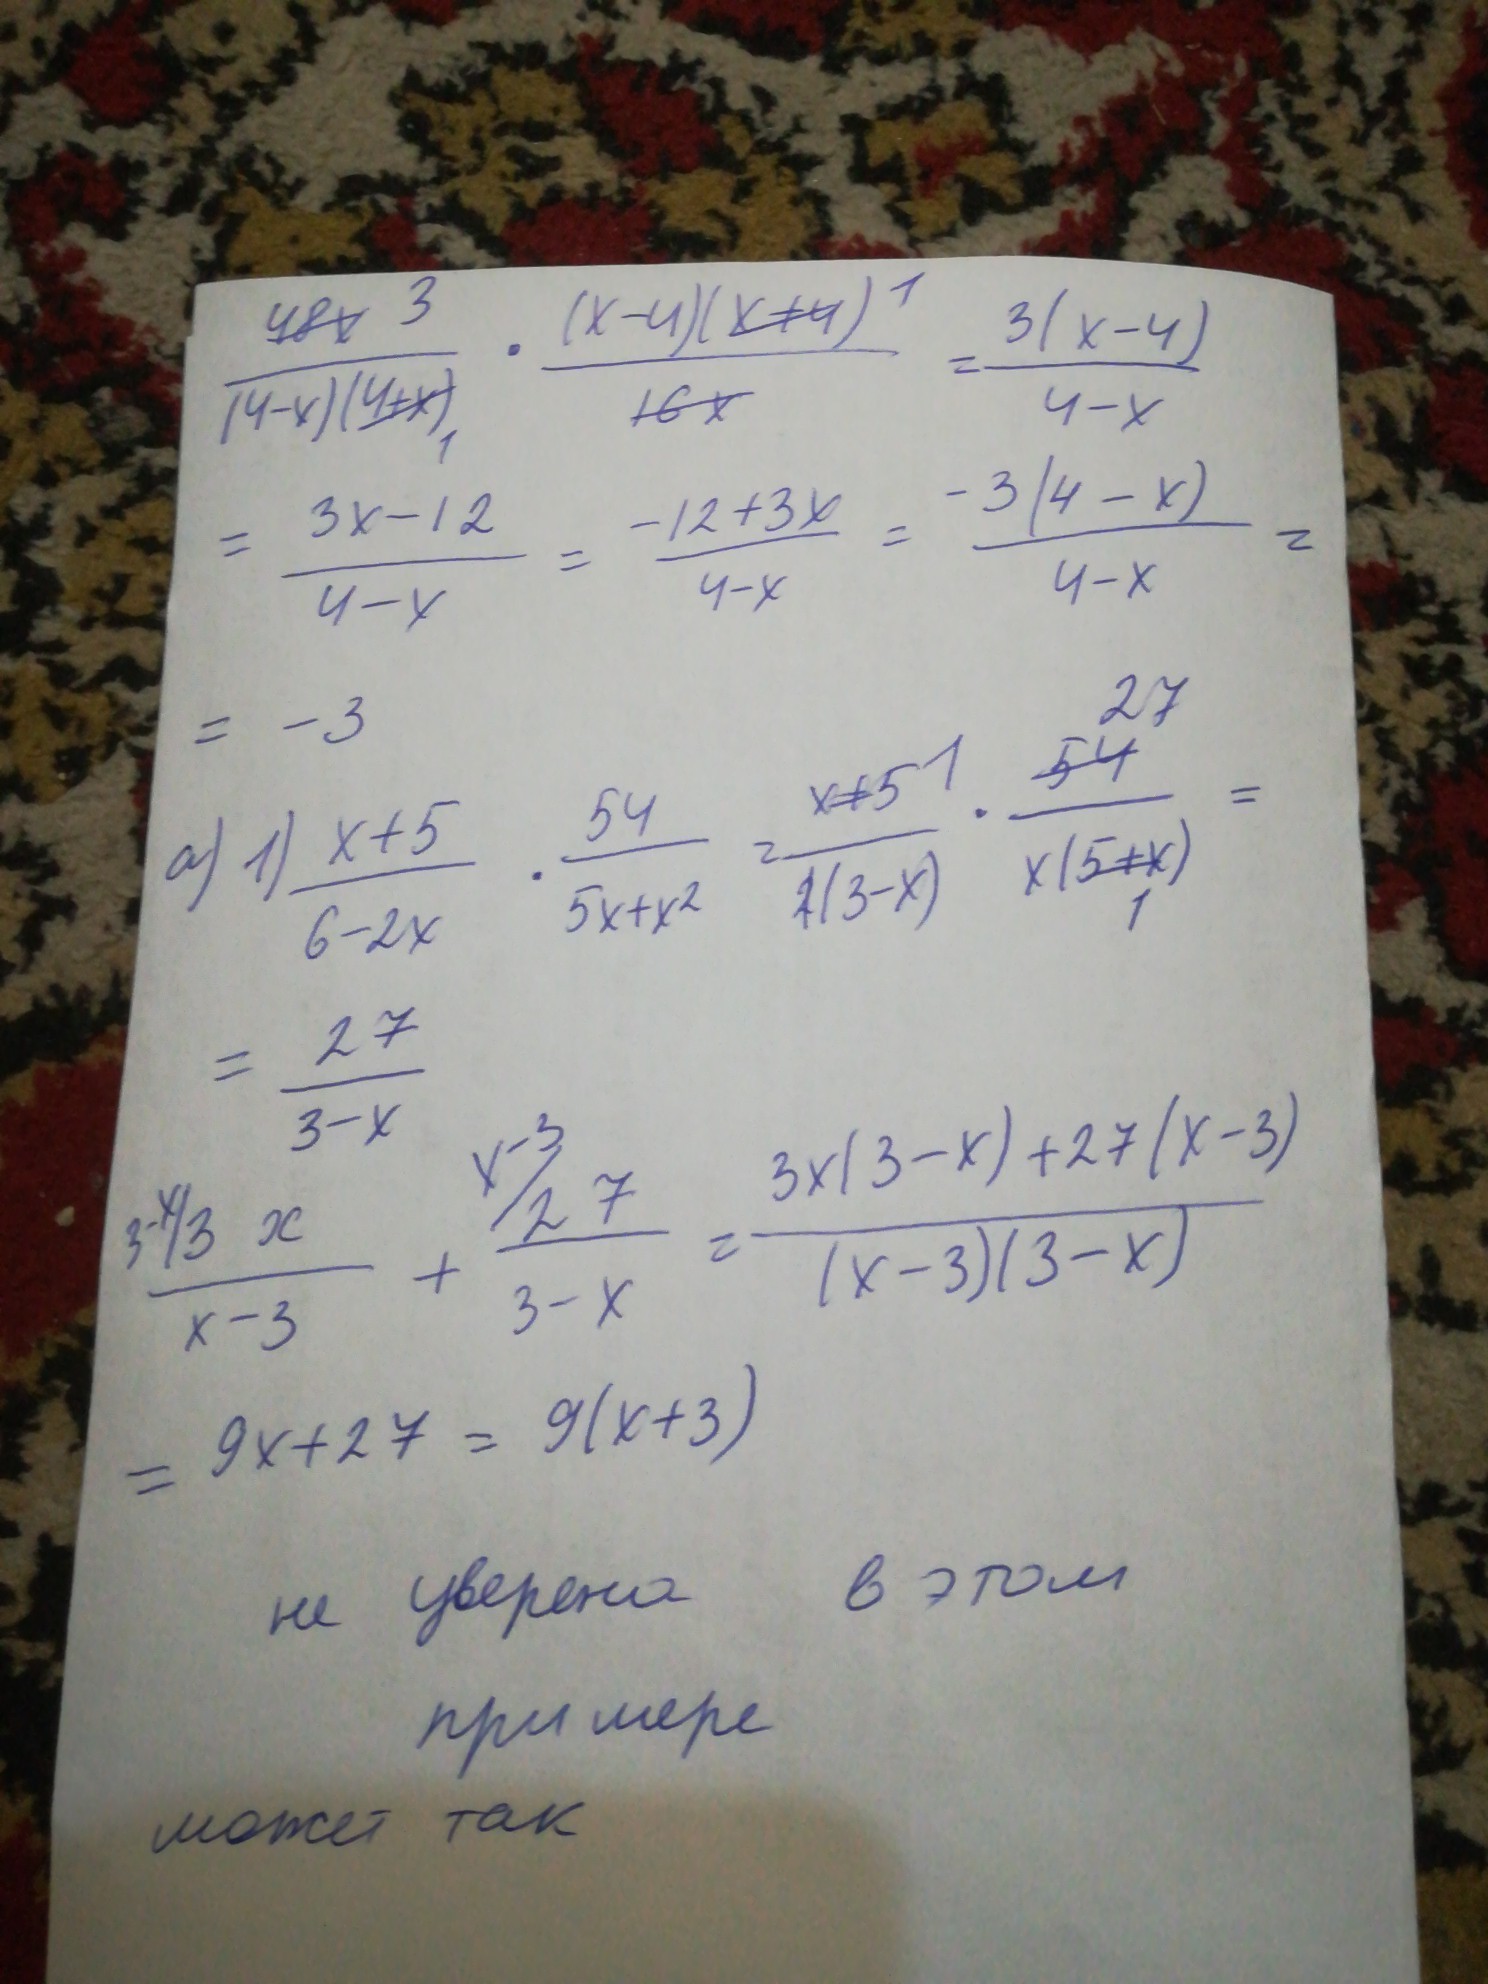 48x 3 / (4-x)(4+x) 1 · (x-4)(x+4) 1 / 16x = 3(x-4) / 4-x
= 3x-12 / 4-x = -12+3x / 4-x = -3(4-x) / 4-x =
= -3
а) 1) x+5 / 6-2x · 54 / 5x+x² = x+5 1 / 1(3-x) · 27 54 / x(5+x) 1 =
= 27 / 3-x
3-x/ 3x / x-3 + x-3/ 27 / 3-x = 3x(3-x)+27(x-3) / (x-3)(3-x)
= 9x+27 = 9(x+3)
не уверена в этом
примере
может так